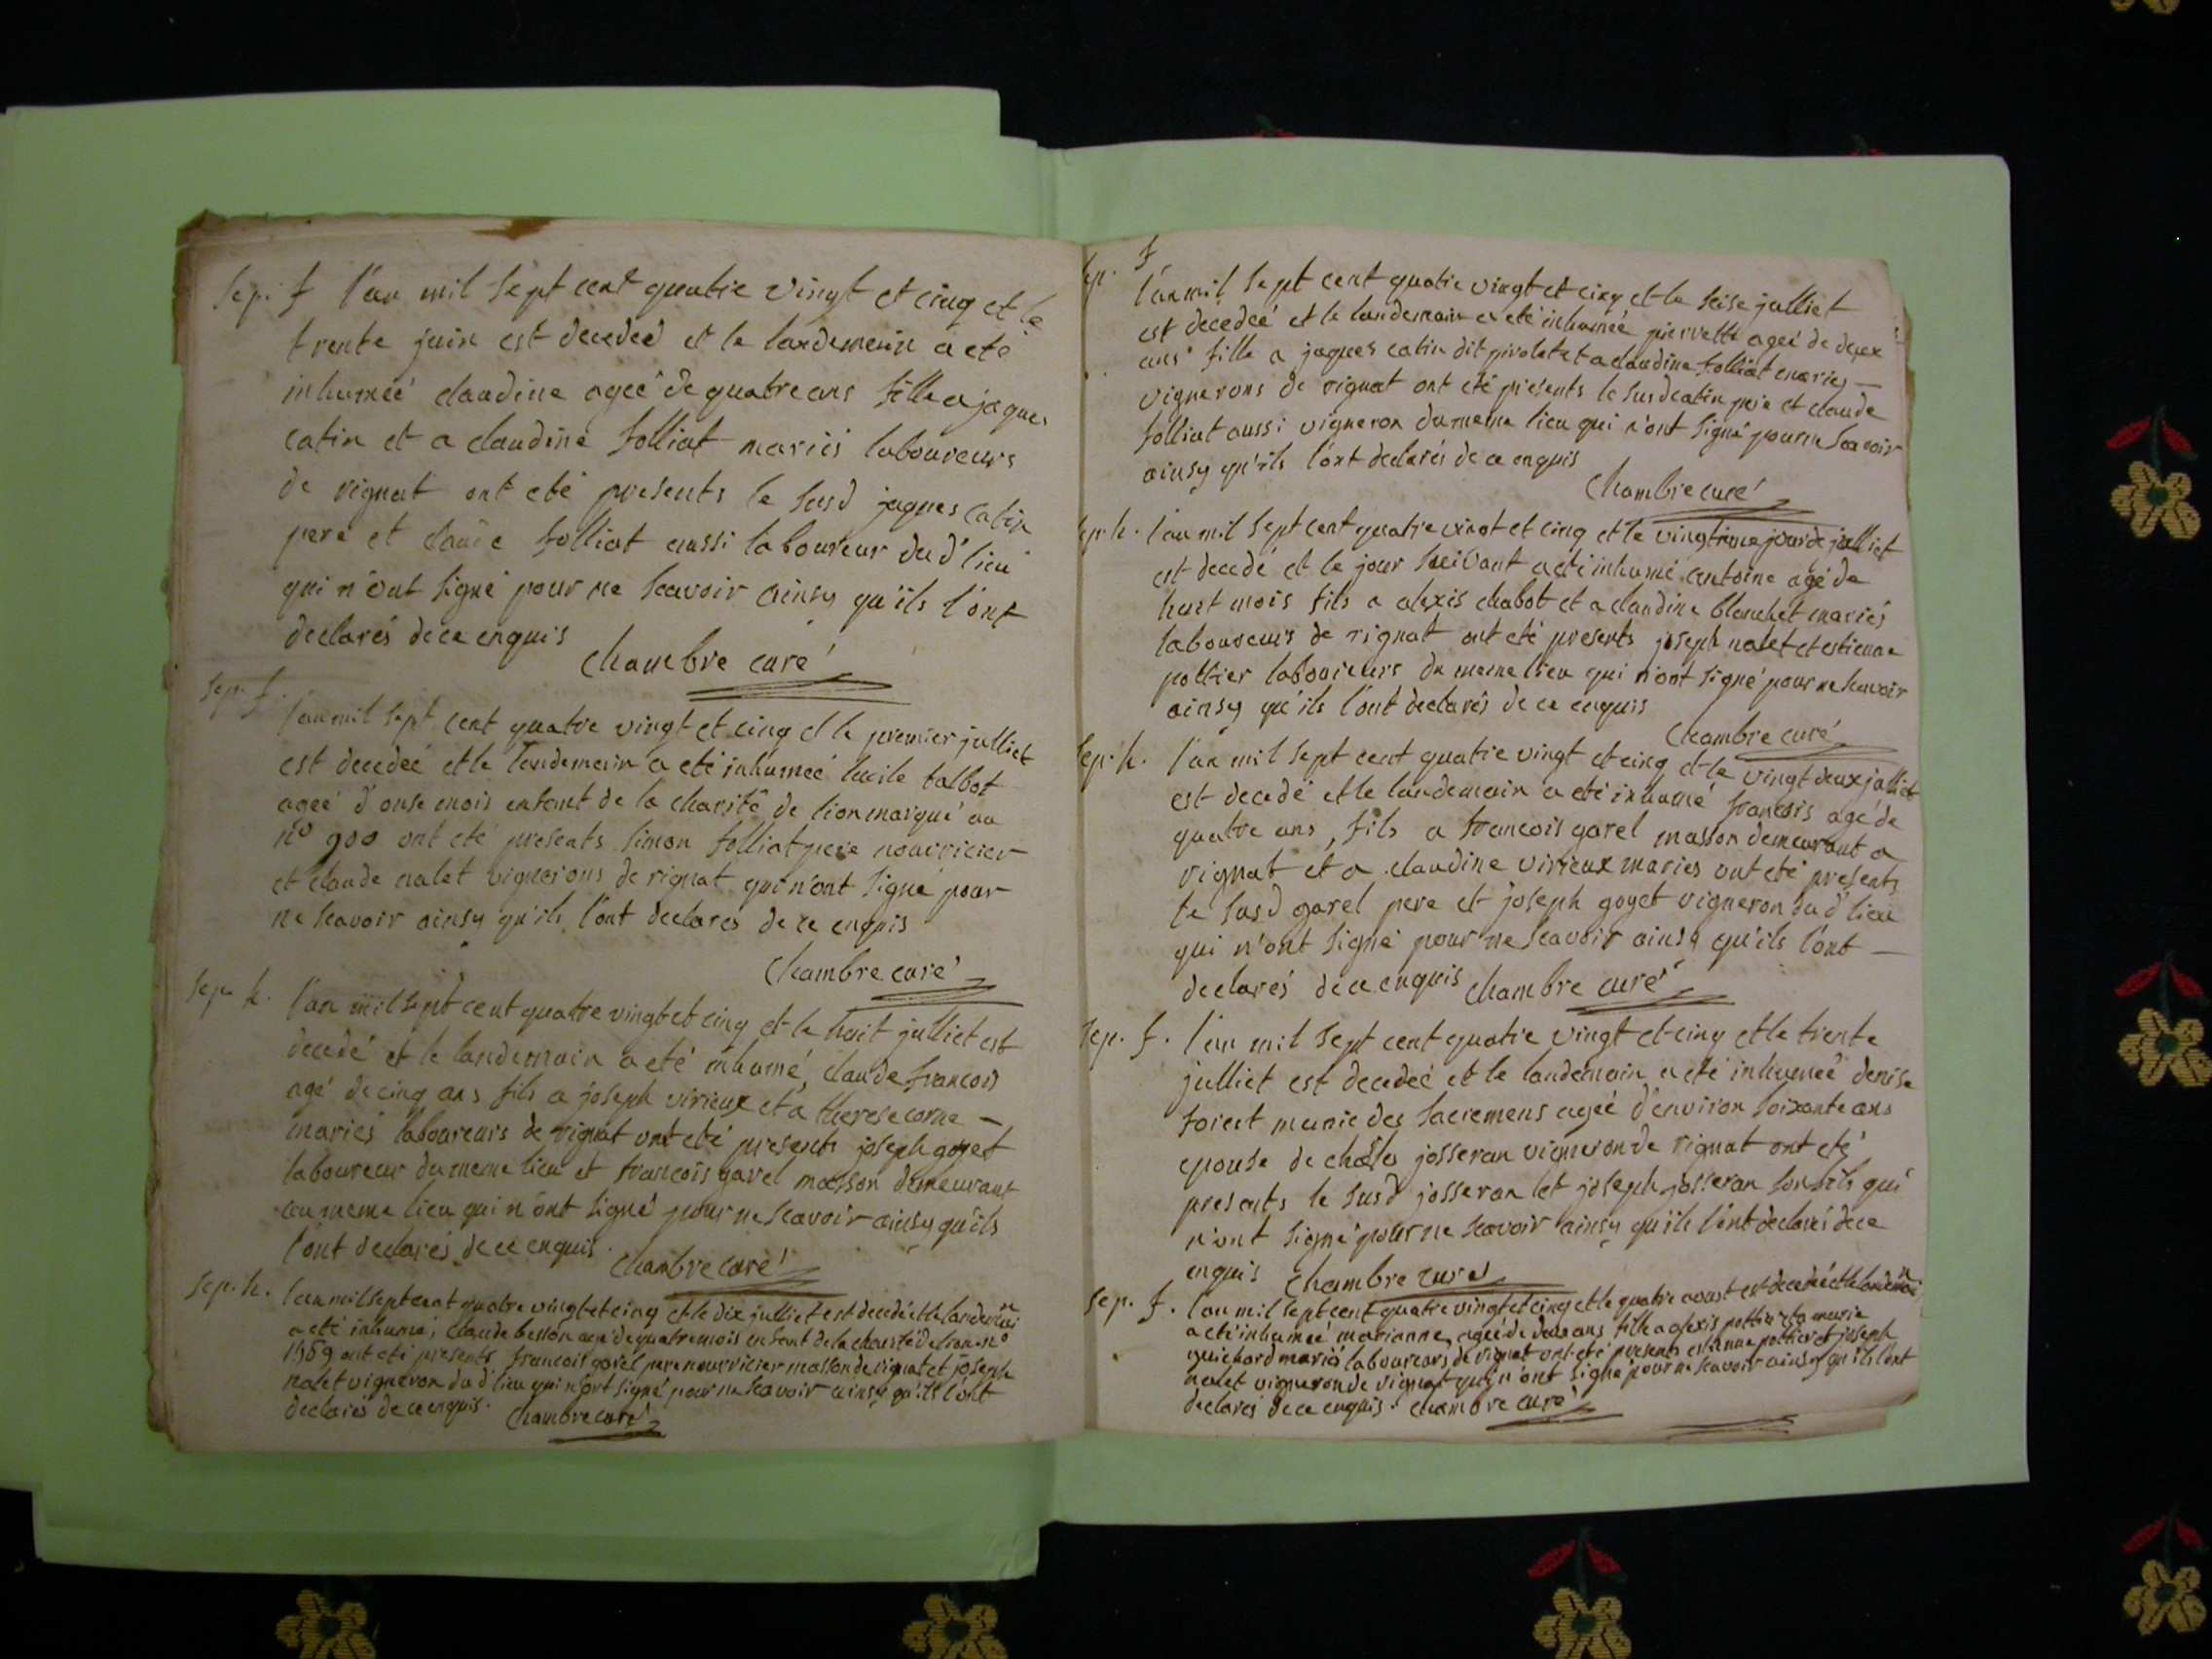 Sep. f l'an mil sept cent quatre vingt et cinq et le
trente juin est decedeé et le landemein a eté
inhumeé claudine ageé de quatre ans fille a jaques
catin et a claudine folliat mariés laboureurs
de rignat ont eté presents le susd jaques catin
pere et claude folliat aussi laboureur dud' lieu
qui n'ont signé pour ne scavoir ainsy qu'ils l'ont
declarés de ce enquis
Chambre curé
Sep. f.
l'an mil sept cent quatre vingt et cinq et le premier julliet
est decedeé et le landemain a eté inhumeé lucile talbot
ageé d'onse mois enfant de la charité de lion marqué au
n° 900 ont eté presents simon folliat pere nourricier
et claude nalet vignerons de rignat qui n'ont signé pour
ne scavoir ainsy qu'ils l'ont declarés de ce enquis
Chambre curé
Sep. h. l'an mil sept cent quatre vingt et cinq et le huit julliet est
decedé et le landemain a eté inhumé, claude francois
agé de cinq ans fils a joseph virieux et a therese corne –
mariés laboureurs de rignat ont eté presents joseph goyet
laboureur du meme lieu et francois garel masson demeurant
au meme lieu qui n'ont signé pour ne scavoir ainsy qu'ils
l'ont declarés de ce enquis.
Chambre curé
Sep. h. l'an mil sept cent quatre vingt et cinq et le dix julliet est decedé et le landemain
a eté inhumé, claude besson agé de quatre mois enfant de la charité de lion n°
1569 ont eté presents francois garel pere nourricier masson de rignat et joseph
nalet vigneron dud' lieu qui n'ont signé pour ne scavoir ainsy qu'ils l'ont
declarés de ce enquis. Chambre curé
Sep. f
l'an mil sept cent quatre vingt et cinq et le seise julliet
est decedeé et le landemain a eté inhumeé pierrette ageé de deux
ans fille a jaques catin dit pirolet et a claudine folliat mariés –
vignerons de rignat ont eté presents le susd catin pere et claude
folliat aussi vigneron du meme lieu qui n'ont signé pour ne scavoir
ainsy qu'ils l'ont declarés de ce enquis
Chambre curé
Sep. h. l'an mil sept cent quatre vingt et cinq et le vingtieme jour de julliet
est decedé et le jour suivant a eté inhumé antoine agé de
huit mois fils a alexis chabot et a claudine blanchet mariés
laboureurs de rignat ont eté presents joseph nalet et estienne
pottier laboureurs du meme lieu qui n'ont signé pour ne scavoir
ainsy qu'ils l'ont declarés de ce enquis
Chambre curé
Sep. h. l'an mil sept cent quatre vingt et cinq et le vingt deux julliet
est decedé et le landemain a eté inhumé francois agé de
quatre ans, fils a francois garel masson demeurant a
rignat et a claudine virieux mariés ont eté presents
le susd garel pere et joseph goyet vigneron dud' lieu
qui n'ont signé pour ne scavoir ainsy qu'ils l'ont –
declarés de ce enquis Chambre curé
Sep. f. l'an mil sept cent quatre vingt et cinq et le trente
julliet est decedeé et le landemain a eté inhumeé denise
munie des sacremens ageé d'environ soixante ans
epouse de josseran vigneron de rignat ont eté
presents le susd josseran et joseph josseran son fils qui
n'ont signé pour ne scavoir ainsy qu'ils l'ont declarés de ce
enquis Chambre curé
Sep. f. l'an mil sept cent quatre vingt et cinq et le quatre aoust est decedeé et le landemain
a eté inhumeé marianne ageé de deux ans fille a alexis pottier et a marie
guichard mariés laboureurs de rignat ont eté presents estienne pottier et joseph
nalet vigneron de rignat qui n'ont signé pour ne scavoir ainsy qu'ils l'ont
declarés de ce enquis. Chambre curé